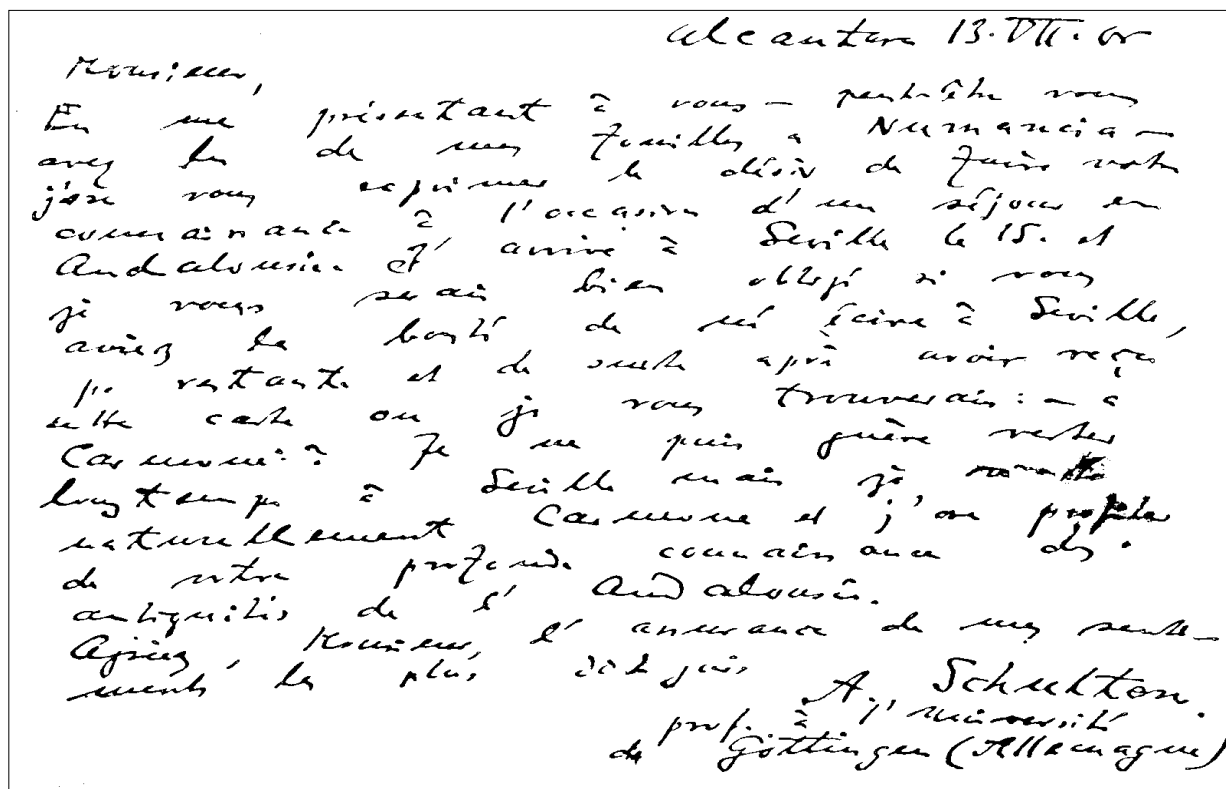 Alcantara 13.VII.05
Monsieur,
En me présentant à vous – peut-être vous
avez lu de mes fouilles a Numancia –
j'ose vous exprimer le désir de faire votre
connaissance à l'occasion d'un séjour en
Andalousie. J'arrive à Seville le 15. et
je vous serais bien obligé si vous
auriez la bonté de m'écrire à Seville,
p. restante et de suite après avoir reçu
cette carte ou je vous trouverais: – a
Carmone? Je ne puis guère rester
longtemps à Seville mais je
naturellement Carmone et j'ose profiter
de votre profonde connaissance des
antiquités de l'Andalousie.
Agréez, Monsieur, l'assurance de mes senti-
ments les plus
A. Schulten.
prof. à l'Université
de Göttingen (Allemagne)